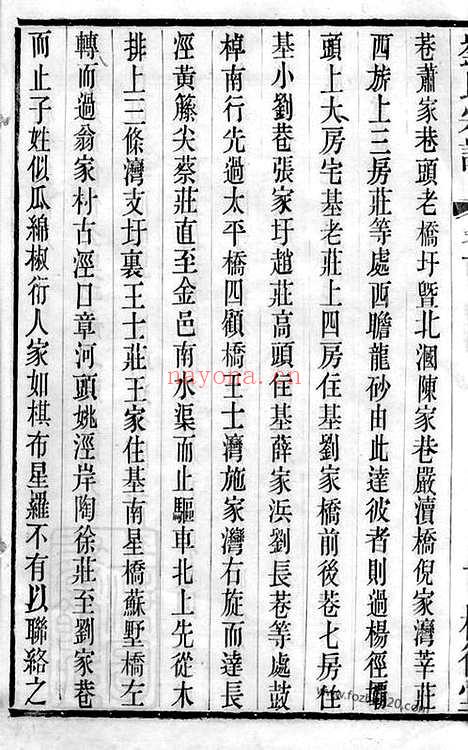 巷蕭家巷頭老橋圩暨北涸陳家巷嚴瀆橋倪家灣莘莊
西族上三房莊等處西瞻龍砂由此達彼者則過楊徑壩
頭上大房宅基老莊上四房住基劉家橋前後巷七房住
基小劉巷張家圩趙莊高頭住基薛家浜劉長巷等處鼓
棹南行先過太平橋四顧橋王士灣施家灣右旋而達長
涇黃籐尖蔡莊直至金邑南水渠而止驅車北上先從木
排上三條灣支圩裏王士莊王家住基南星橋蘇墅橋左
轉而過翁家朴古涇口章河頭姚涇岸陶徐莊至劉家巷
而止子姓似瓜綿椒衍人家如棋布星羅不有以聯絡之
nayona.cn
www.fozhu920.com